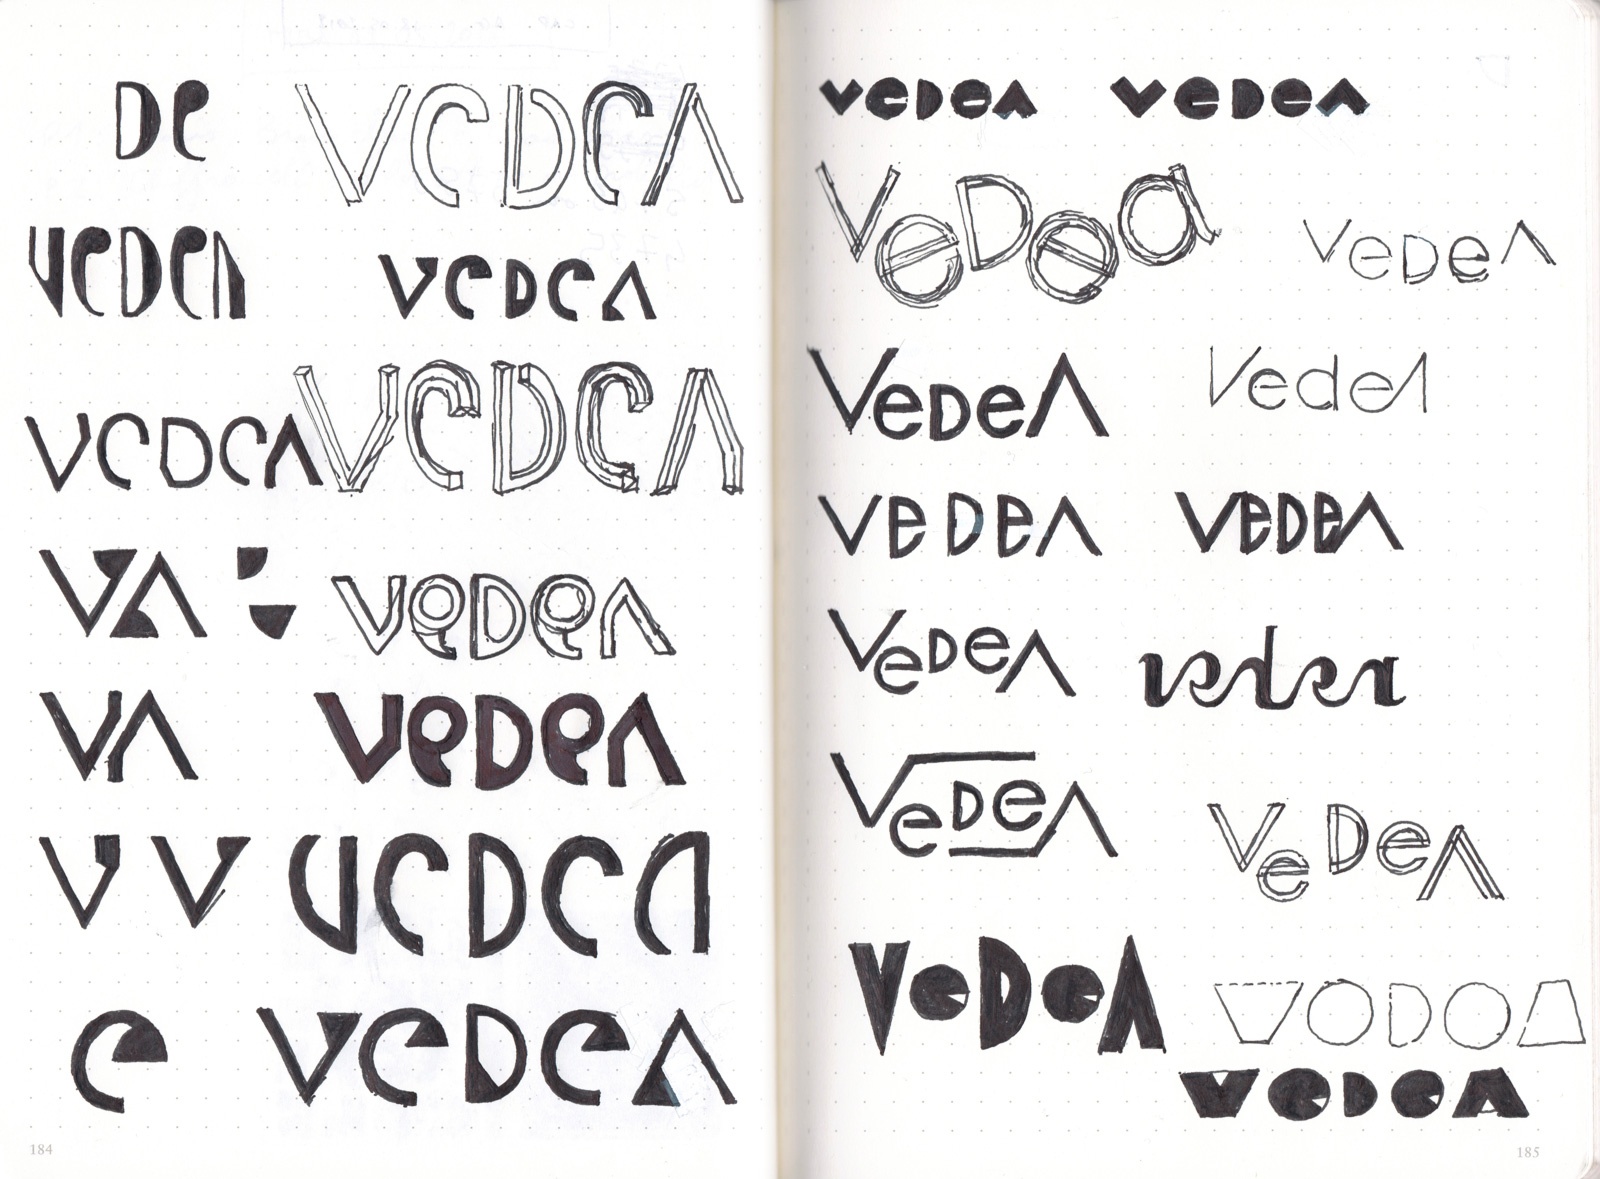 De VeDeA
VeDeA VeDeA
VeDeA VeDeA
VA VeDeA
VA VeDeA
V V VeDeA
e VeDeA
184
VeDeA VeDeA
VeDea VeDeA
VeDeA VedeA
VeDeA VeDeA
VeDeA vedea
VeDeA VeDeA
VeDeA VODOA
VeDeA
185